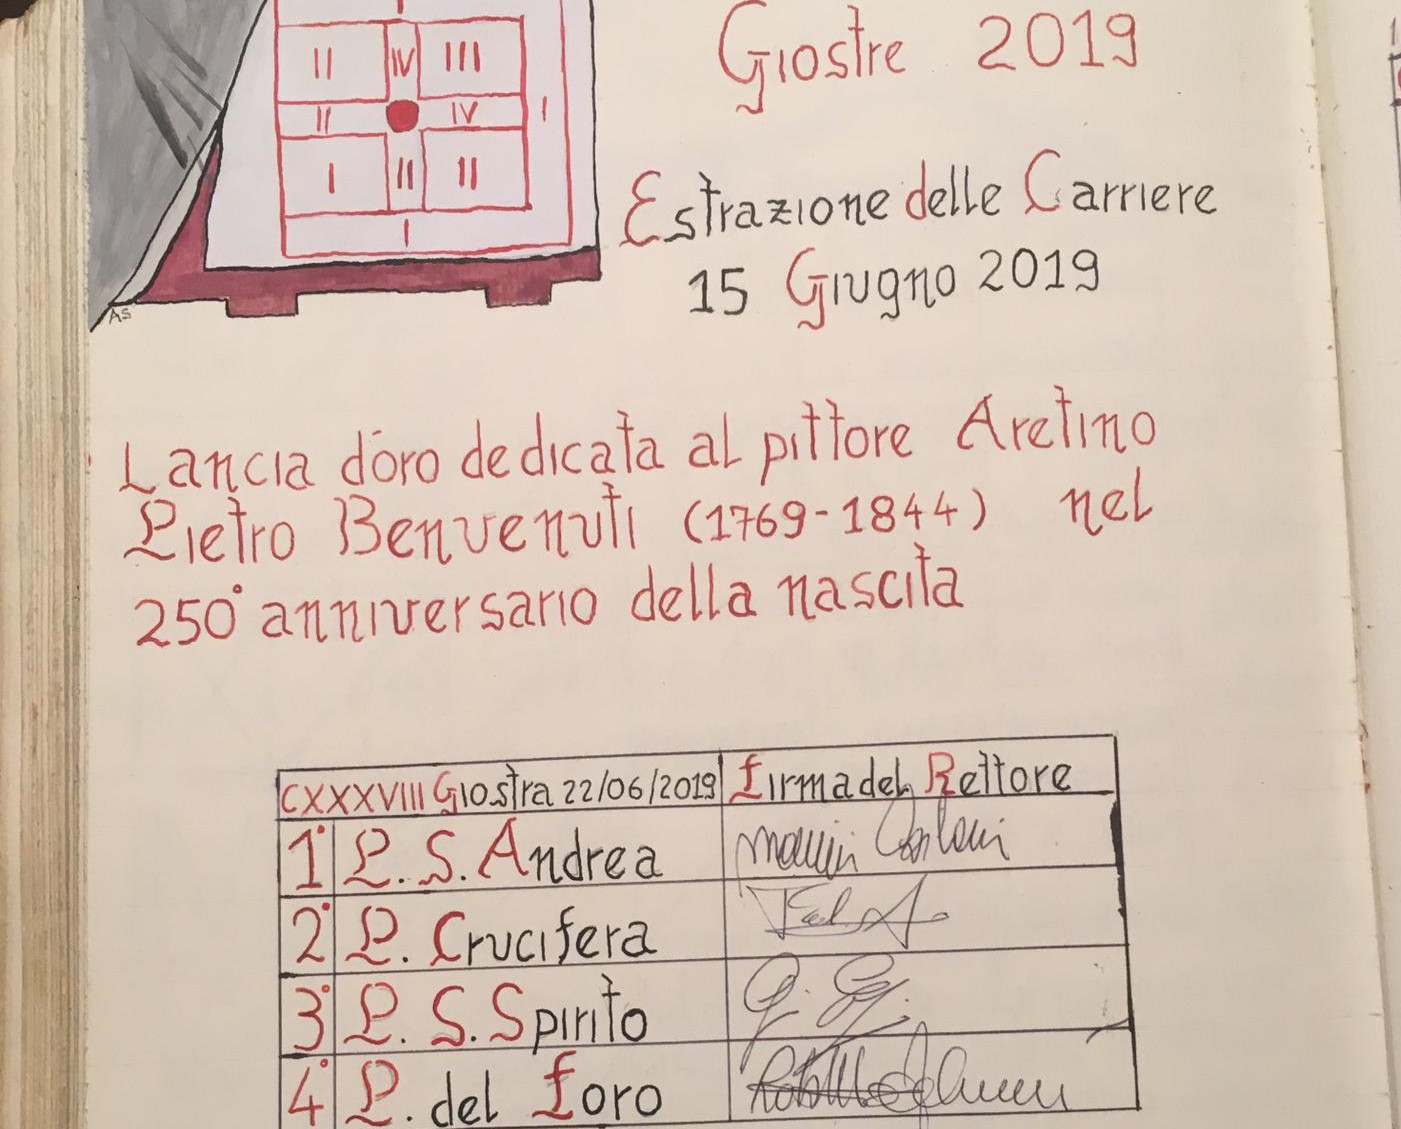 II IV III
II IV I
I II II
I
AS
Giostre 2019
Estrazione delle Carriere
15 Giugno 2019
Lancia d'oro dedicata al pittore Aretino
Pietro Benvenuti (1769-1844) nel
250° anniversario della nascita
CXXXVIII Giostra 22/06/2019 Firma del Rettore
1° P. S. Andrea
2° P. Crucifera
3° P. S. Spirito
4° P. del Foro